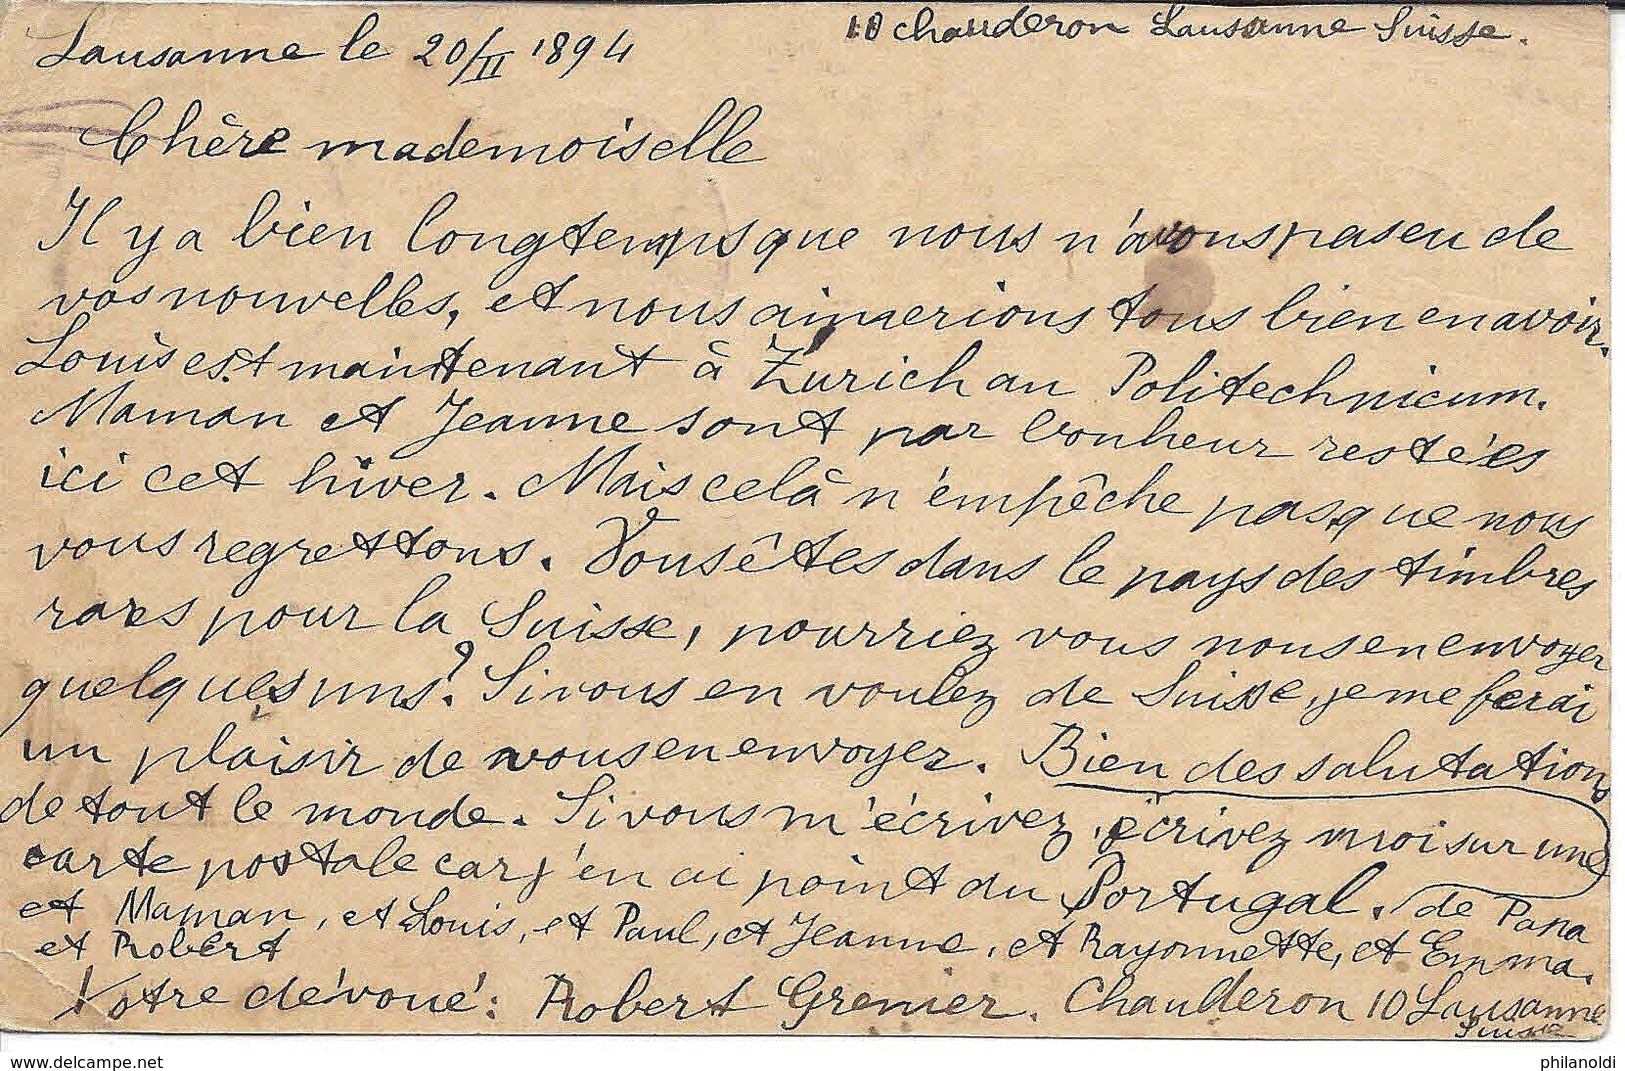 10 Chauderon Lausanne Suisse.
Lausanne le 20/II 1894
Chère mademoiselle
Il y a bien longtemps que nous n'avons pas eu de
vos nouvelles, et nous aimerions tous bien en avoir.
Louis est maintenant à Zurich au Politechnicum.
Maman et Jeanne sont par bonheur restées
ici cet hiver. Mais celà n'empêche pas que nous
vous regrettons. Vous êtes dans le pays des timbres
rares pour la Suisse, pourriez vous nous en envoyer
quelques uns? Si vous en voulez de Suisse, je me ferai
un plaisir de vous en envoyer. Bien des salutations
de tout le monde. Si vous m'écrivez, écrivez moi sur une
carte postale car j'en ai point du Portugal. de Papa
et Maman, et Louis, et Paul, et Jeanne, et Rayonnette, et Emma.
et Robert
Votre dévoué: Robert Grenier. Chauderon 10 Lausanne
Suisse
philanoldi